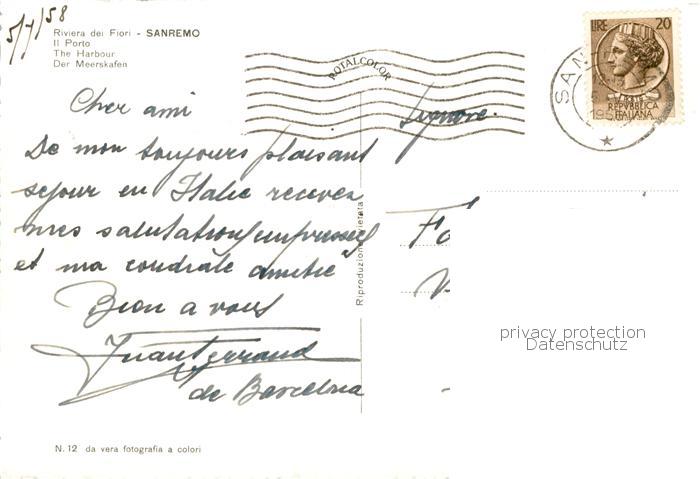 5/7/58
Riviera dei Fiori - SANREMO
Il Porto
The Harbour
Der Meerskafen
LIRE 20
REPVBBLICA
ITALIANA
SAN
195
ROTALCOLOR
Cher ami
De mon toujours plaisant
sejour en Italie recevez
mes salutations
et ma cordiale amitié
Bien a vous
de Barcelona
Signore.
Fo
V
Riproduzione vietata
privacy protection
Datenschutz
N. 12 da vera fotografia a colori